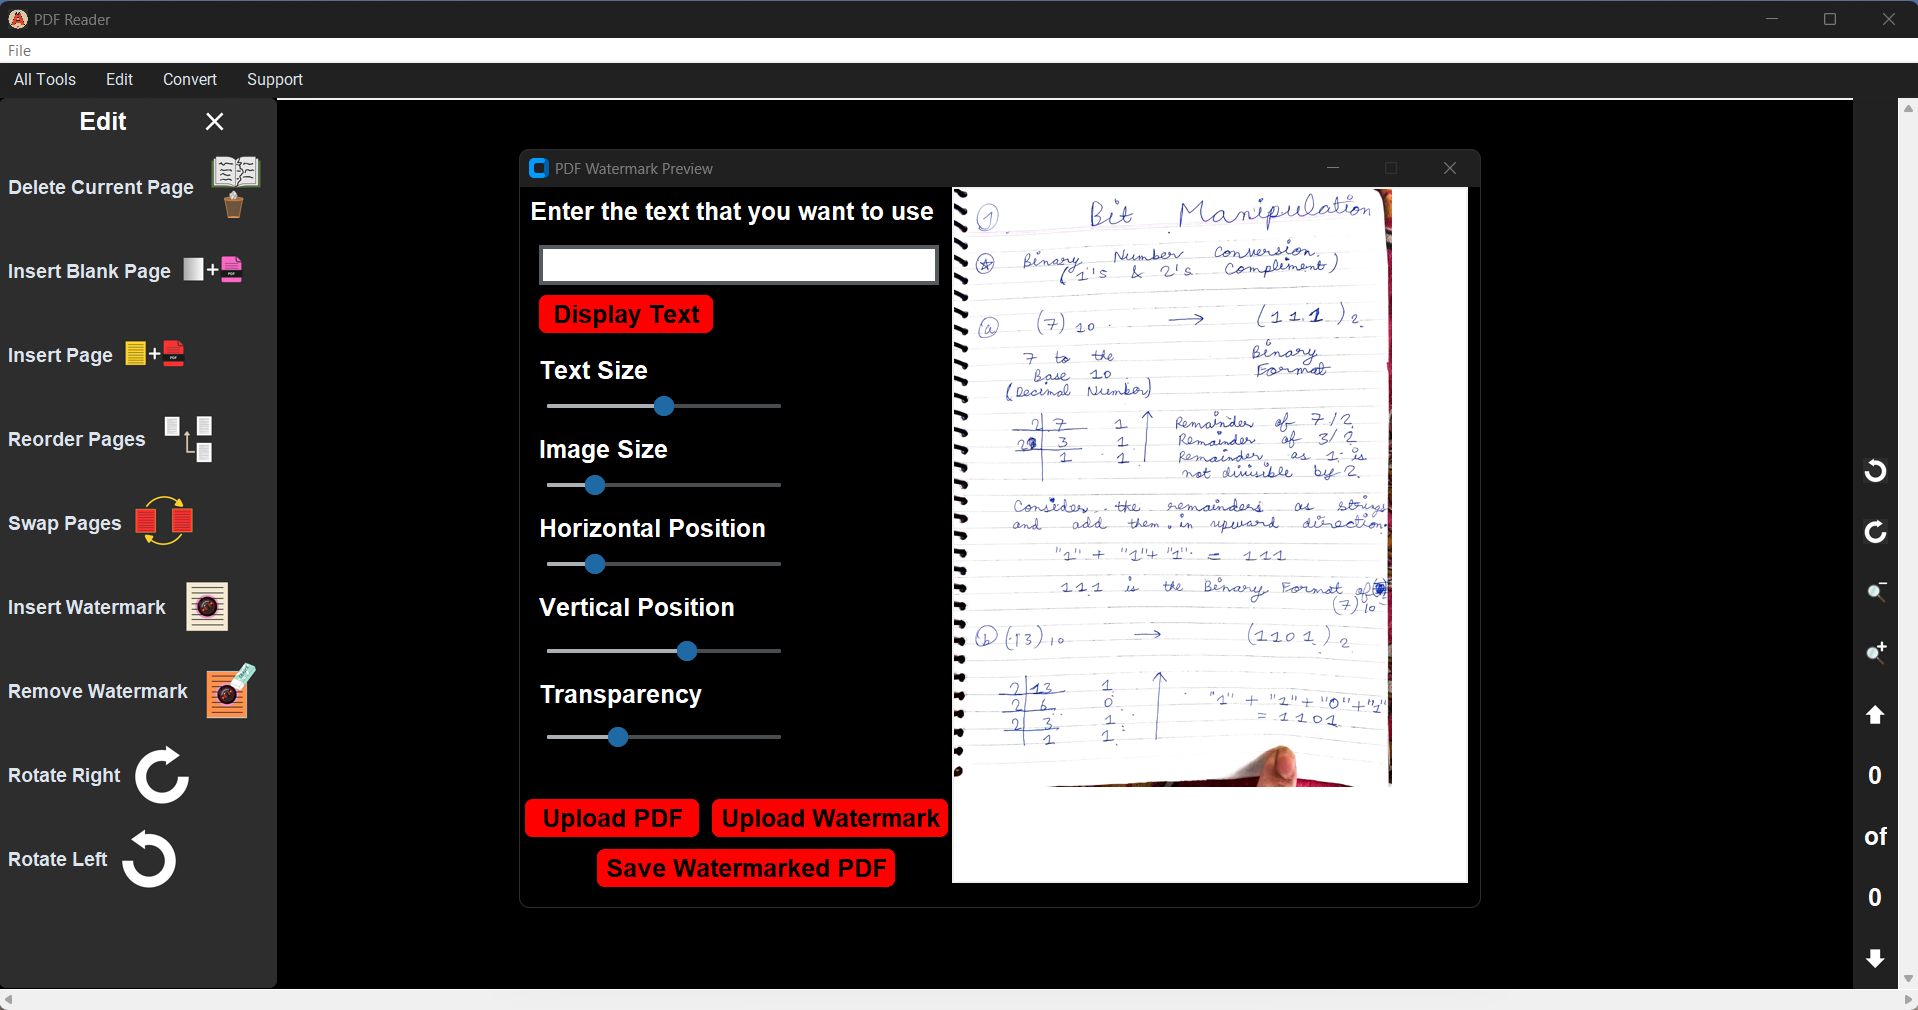 PDF Reader
File
All Tools Edit Convert Support
Edit
Delete Current Page
Insert Blank Page
Insert Page
Reorder Pages
Swap Pages
Insert Watermark
Remove Watermark
Rotate Right
Rotate Left
PDF Watermark Preview
Enter the text that you want to use
Display Text
Text Size
Image Size
Horizontal Position
Vertical Position
Transparency
Upload PDF Upload Watermark
Save Watermarked PDF
1 Bit Manipulation
Binary Number Conversion.
(1's & 2's Compliment)
a (7) 10 → (111) 2.
7 to the Binary
Base 10 Format
(Decimal Number)
2 7 1 Remainder of 7/2
2 3 1 Remainder of 3/2
1 1 Remainder as 1 is
not divisible by 2.
Consider the remainders as strings
and add them in upward direction.
"1" + "1" + "1" = 111
111 is the Binary Format of
(7) 10
b (13) 10 → (1101) 2
2 13 1
2 6 0
2 3 1
1 1
"1" + "1" + "0" + "1"
= 1101
0
of
0